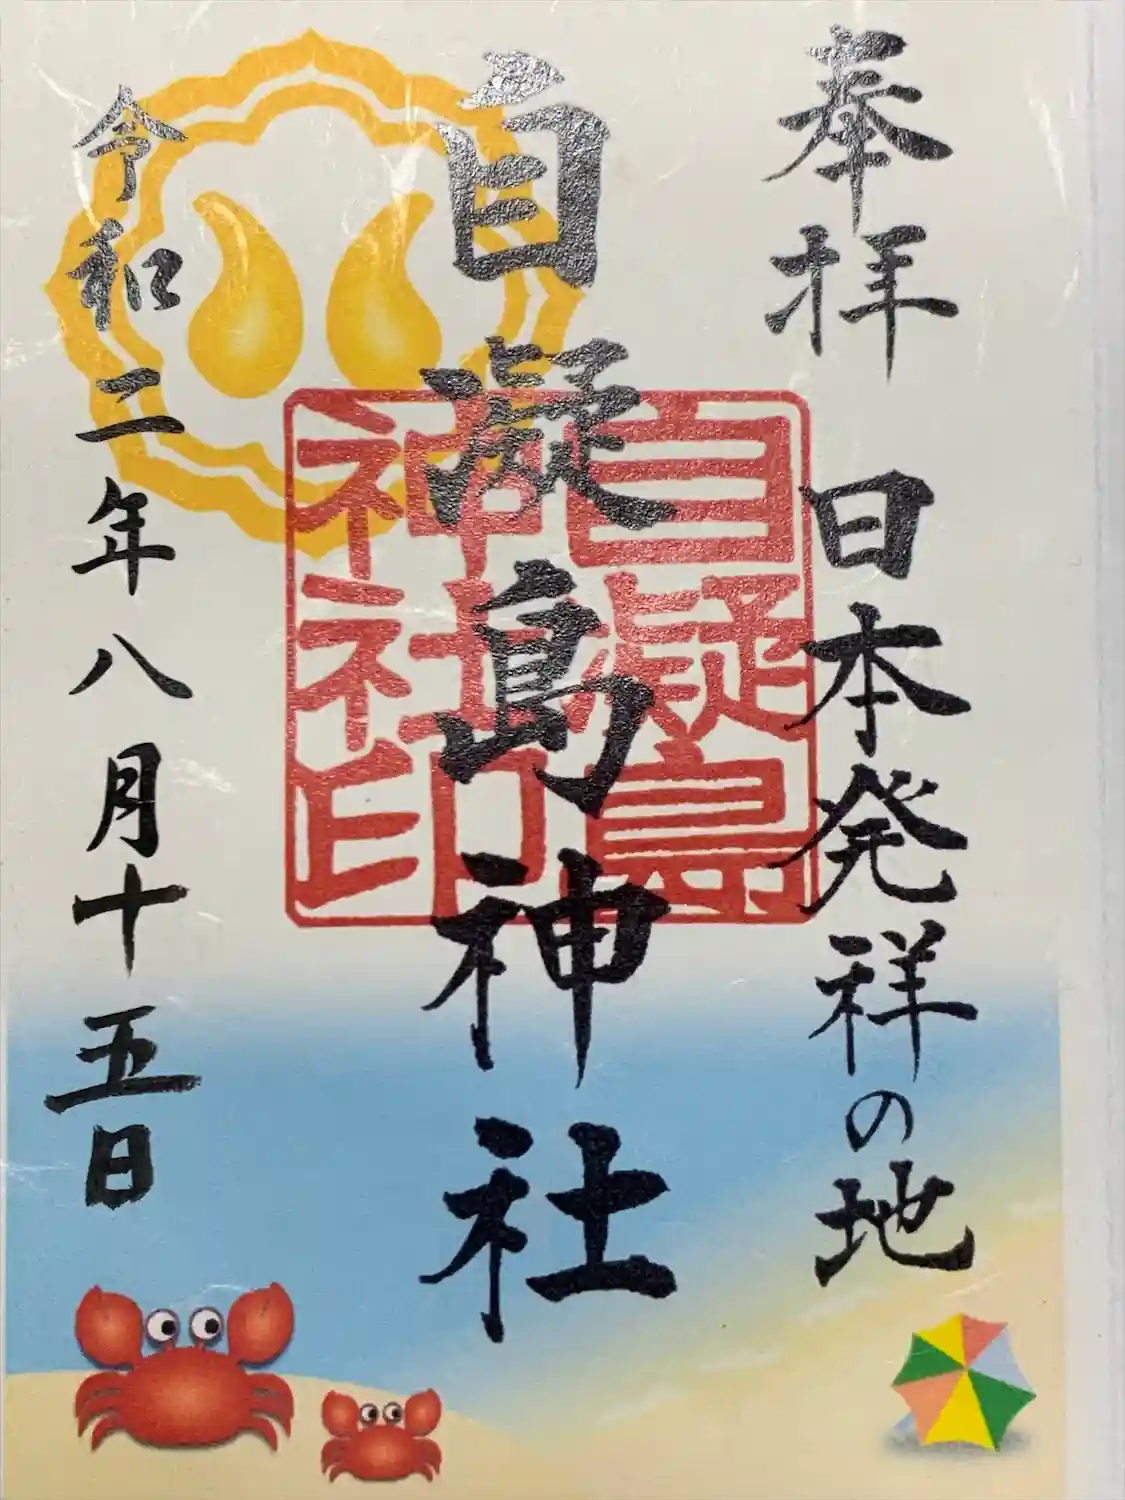 奉拝 日本発祥の地
自凝島神社
自凝島
神社印
令和二年八月十五日